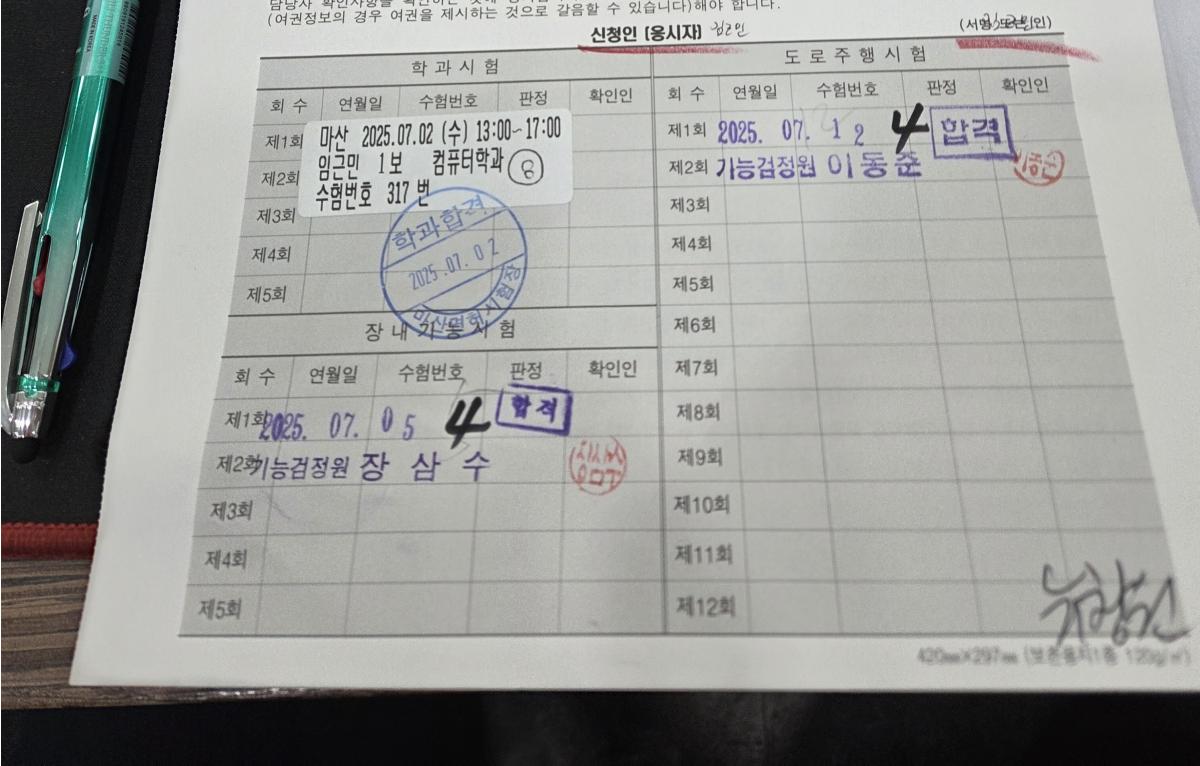 (여권정보의 경우 여권을 제시하는 것으로 갈음할 수 있습니다)해야 합니다.
신청인 (응시자) 임근민
(서명 또는 인)
학 과 시 험
회 수 연월일 수험번호 판정 확인인
제1회
마산 2025.07.02 (수) 13:00~17:00
임근민 1보 컴퓨터학과 8
수험번호 317 번
제2회
제3회
학과합격
2025.07.02
마산면허시험장
제4회
제5회
장 내 기 능 시 험
회 수 연월일 수험번호 판정 확인인
제1회 2025. 07. 05 4 합격
제2회 기능검정원 장 삼 수
제3회
제4회
제5회
도 로 주 행 시 험
회 수 연월일 수험번호 판정 확인인
제1회 2025. 07. 12 4 합격
제2회 기능검정원 이 동 준
제3회
제4회
제5회
제6회
제7회
제8회
제9회
제10회
제11회
제12회
420㎜×297㎜ (보존용지1종 120g/㎡)